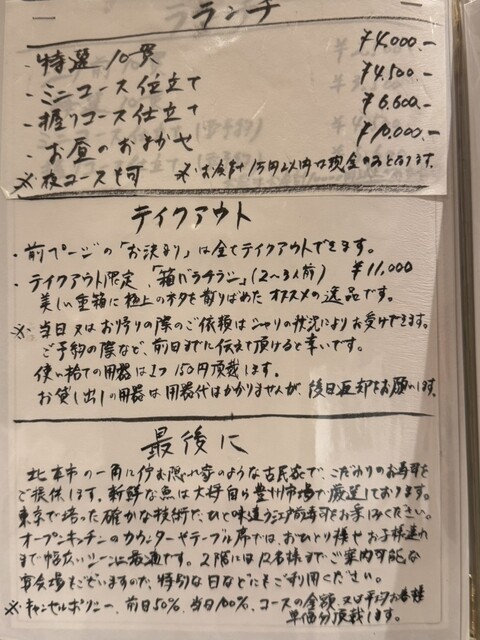 ランチ
・特選10貫 ¥4,000.-
・ミニコース仕立て ¥4,500.-
・握りコース仕立て ¥6,600.-
・お昼のおまかせ ¥10,000.-
※夜コースも可 ※お会計1万円以内は現金のみとなります。
テイクアウト
・前ページの「お決まり」は全てテイクアウトできます。
・テイクアウト限定、「箱バラチラシ」(2〜3人前) ¥11,000
美しい重箱に極上のネタを散りばめたオススメの逸品です。
※当日又はお帰りの際のご依頼はシャリの状況によりお受けできます。
ご予約の際など、前日までに伝えて頂けると幸いです。
使い捨ての用器は1つ150円頂戴します。
お貸し出しの用器は用器代はかかりませんが、後日返却をお願いします。
最後に
北本市の一角に佇む隠れ家のような古民家で、こだわりのお寿司を
ご提供します。新鮮な魚は大将自ら豊洲市場で厳選しております。
東京で培った確かな技術で、ひと味違う江戸前寿司をお楽しみください。
オープンキッチンのカウンターやテーブル席では、おひとり様やお子様連れ
まで幅広いシーンに最適です。2階には12名様までご案内可能な
宴会場もございますので、特別な日などにもご利用ください。
※キャンセルポリシー、前日50%、当日100%、コースの金額、又は平均お客様
単価分頂戴します。